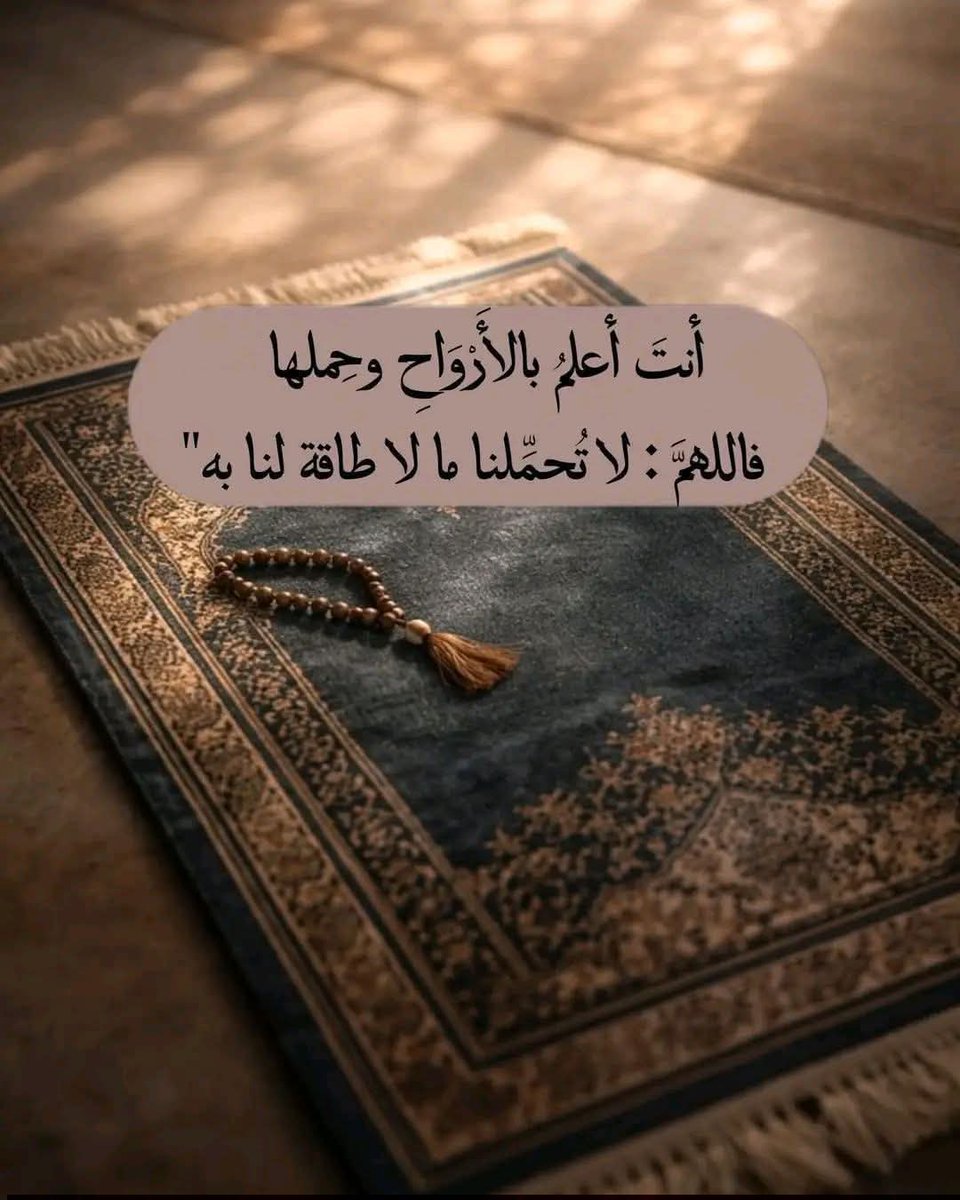 أنتَ أعلمُ بالأَرْوَاحِ وحِملها
فاللهمَّ : لا تُحمّلنا ما لا طاقة لنا به"